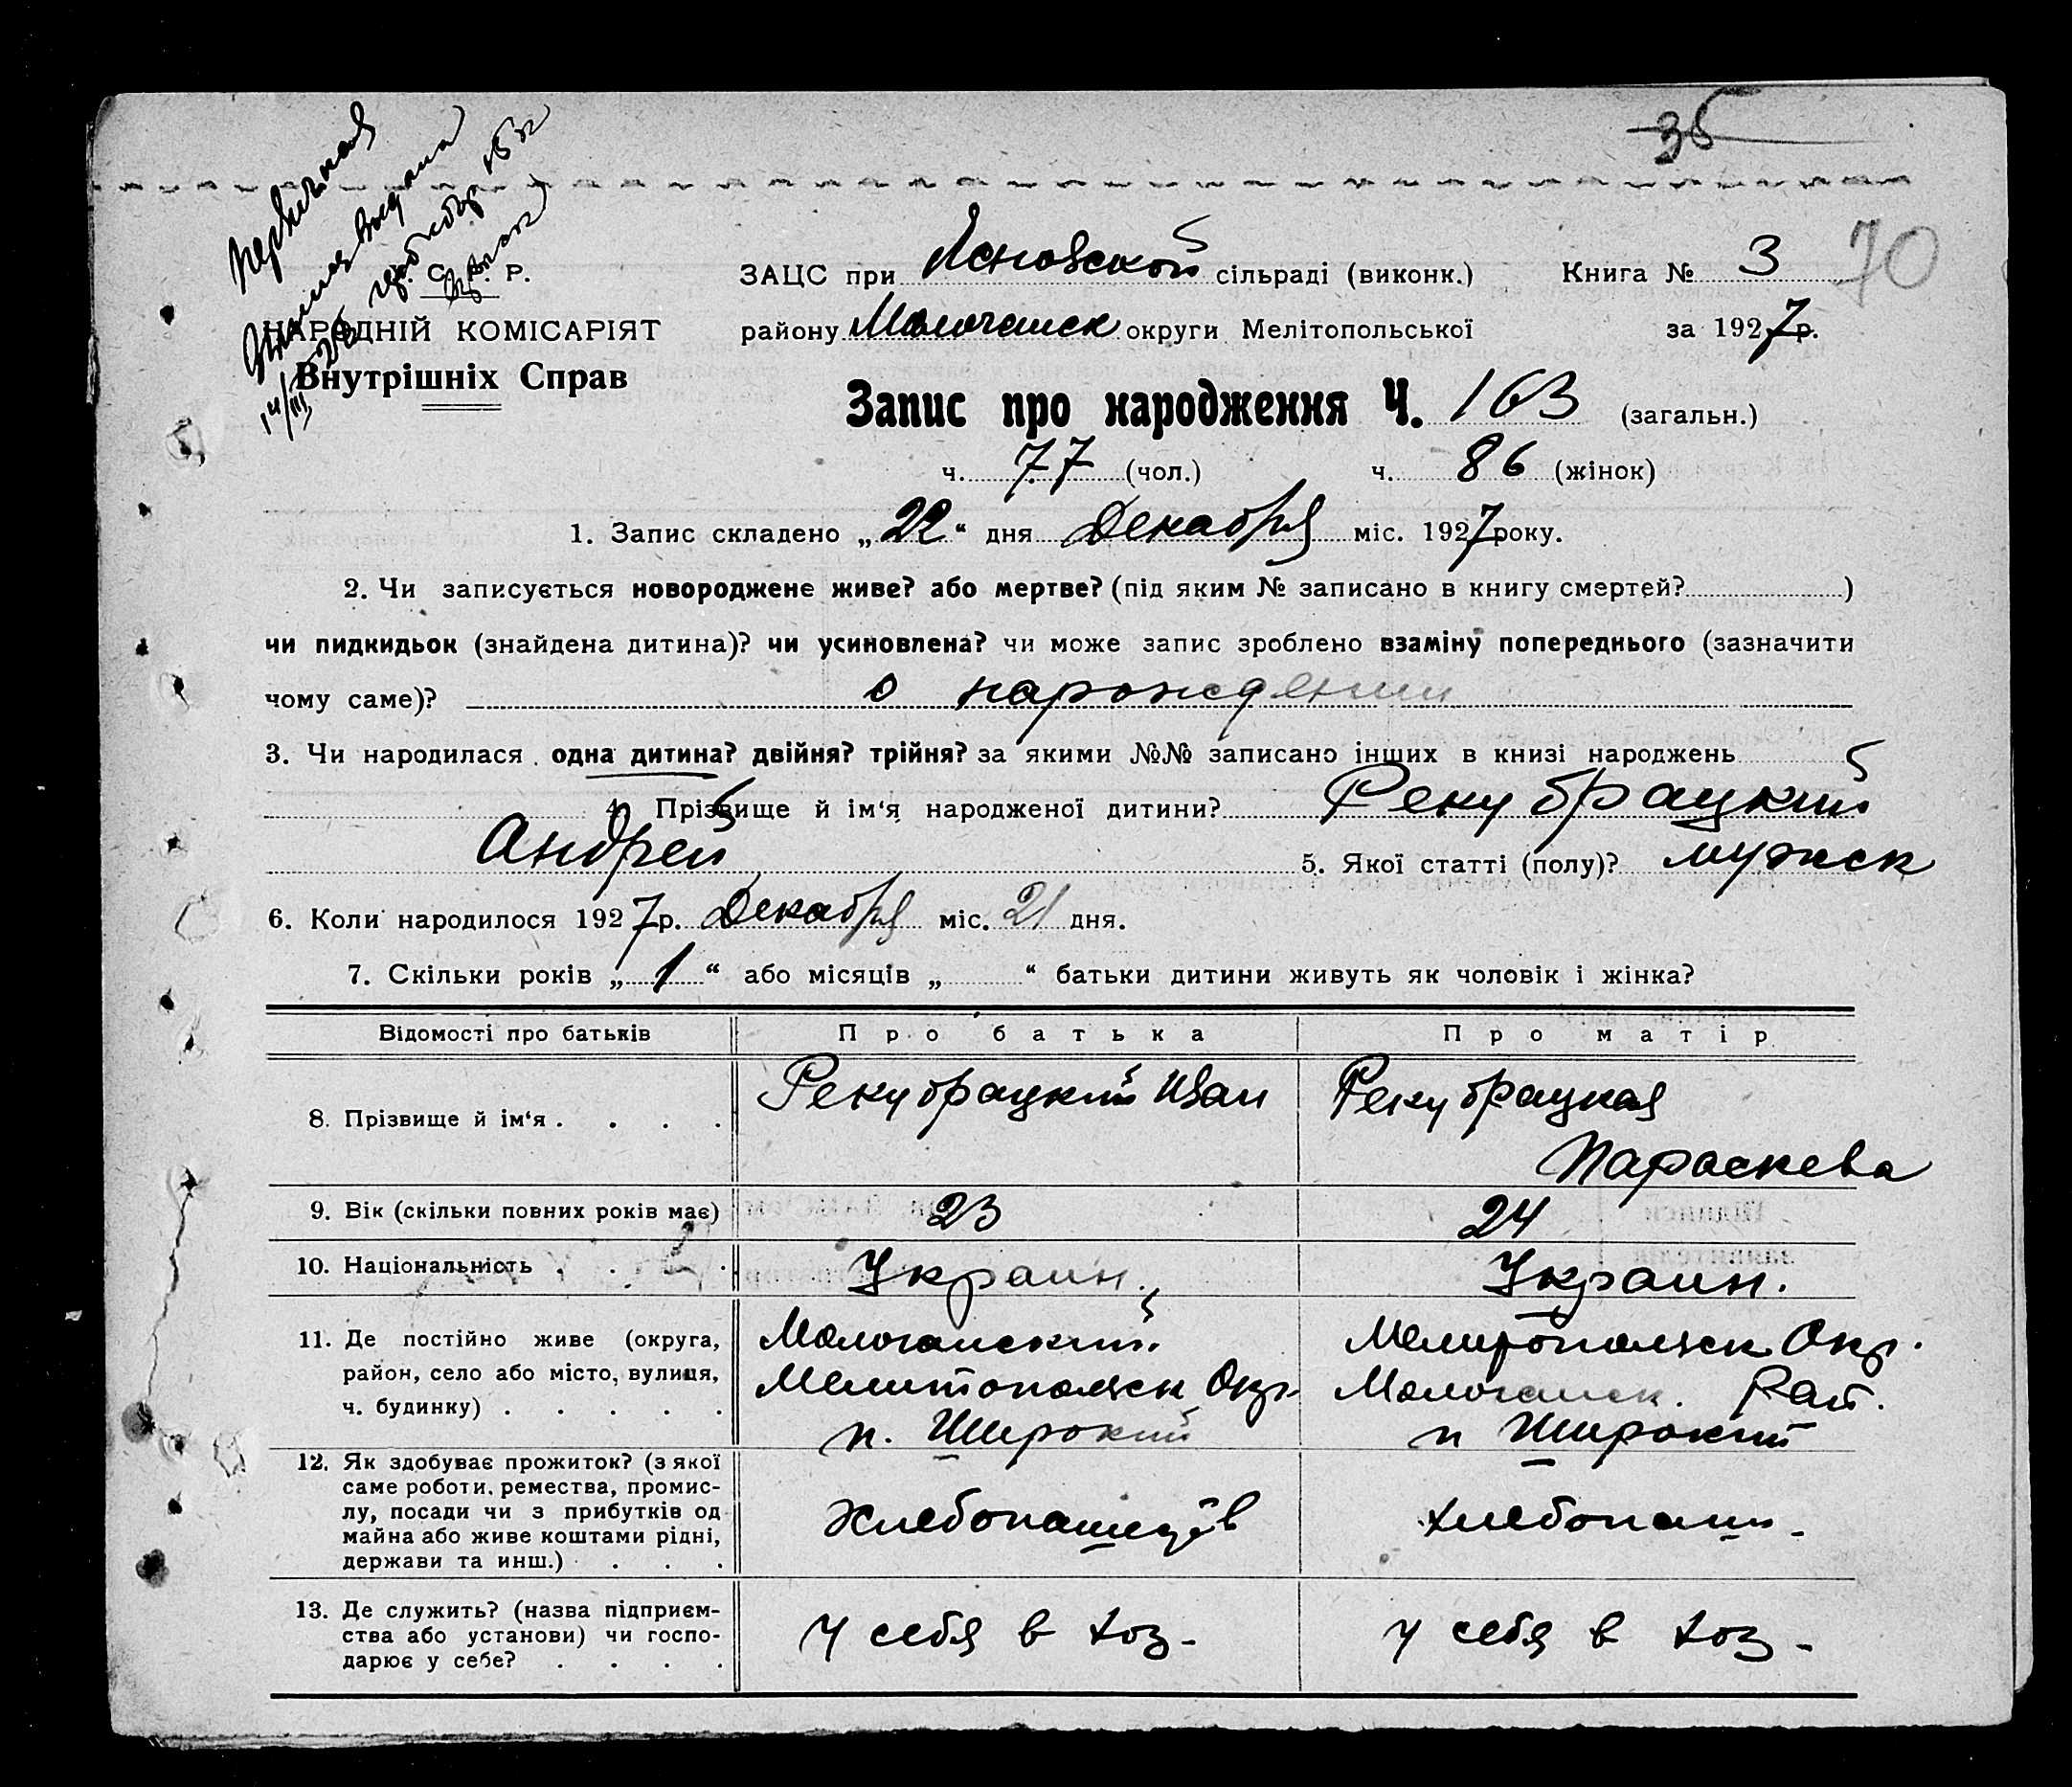 35
70
ЗАЦС при Ясновской сільраді (виконк.) Книга № 3
У. С. Р. Р.
НАРОДНІЙ КОМІСАРІЯТ
Внутрішніх Справ
району Молочанск округи Мелітопольської за 1927 р.
Запис про народження Ч. 163 (загальн.)
ч. 77 (чол.) ч. 86 (жінок)
1. Запис складено „22“ дня Декабря міс. 1927 року.
2. Чи записується новороджене живе? або мертве? (під яким № записано в книгу смертей? )
чи пидкидьок (знайдена дитина)? чи усиновлена? чи може запис зроблено взаміну попереднього (зазначити
чому саме)? о нарождении
3. Чи народилася одна дитина? двійня? трійня? за якими №№ записано інших в книзі народжень
4. Прізвище й ім'я народженої дитини? Рекубрацкий
Андрей 5. Якої статті (полу)? мужск
6. Коли народилося 1927 р. Декабря міс. 21 дня.
7. Скільки років „1“ або місяців „ “ батьки дитини живуть як чоловік і жінка?
Відомості про батьків Про батька Про матір
8. Прізвище й ім'я . . . . Рекубрацкий Иван Рекубрацкая
Параскева
9. Вік (скільки повних років має) 23 24
10. Національність . . . . Украин. Украин.
11. Де постійно живе (округа, Молочанский Мелитопольск Окр.
район, село або місто, вулиця, Мелитопольск Окр. Молочанск. Рай.
ч. будинку) . . . . . п. Широкий п Широкий
12. Як здобуває прожиток? (з якої
саме роботи, ремества, промис-
лу, посади чи з прибутків од Хлебопашедв хлебопаш-
майна або живе коштами рідні,
держави та инш.) . . .
13. Де служить? (назва підприєм-
ства або установи) чи госпо- у себя в хоз- у себя в хоз-
дарює у себе? . . . .